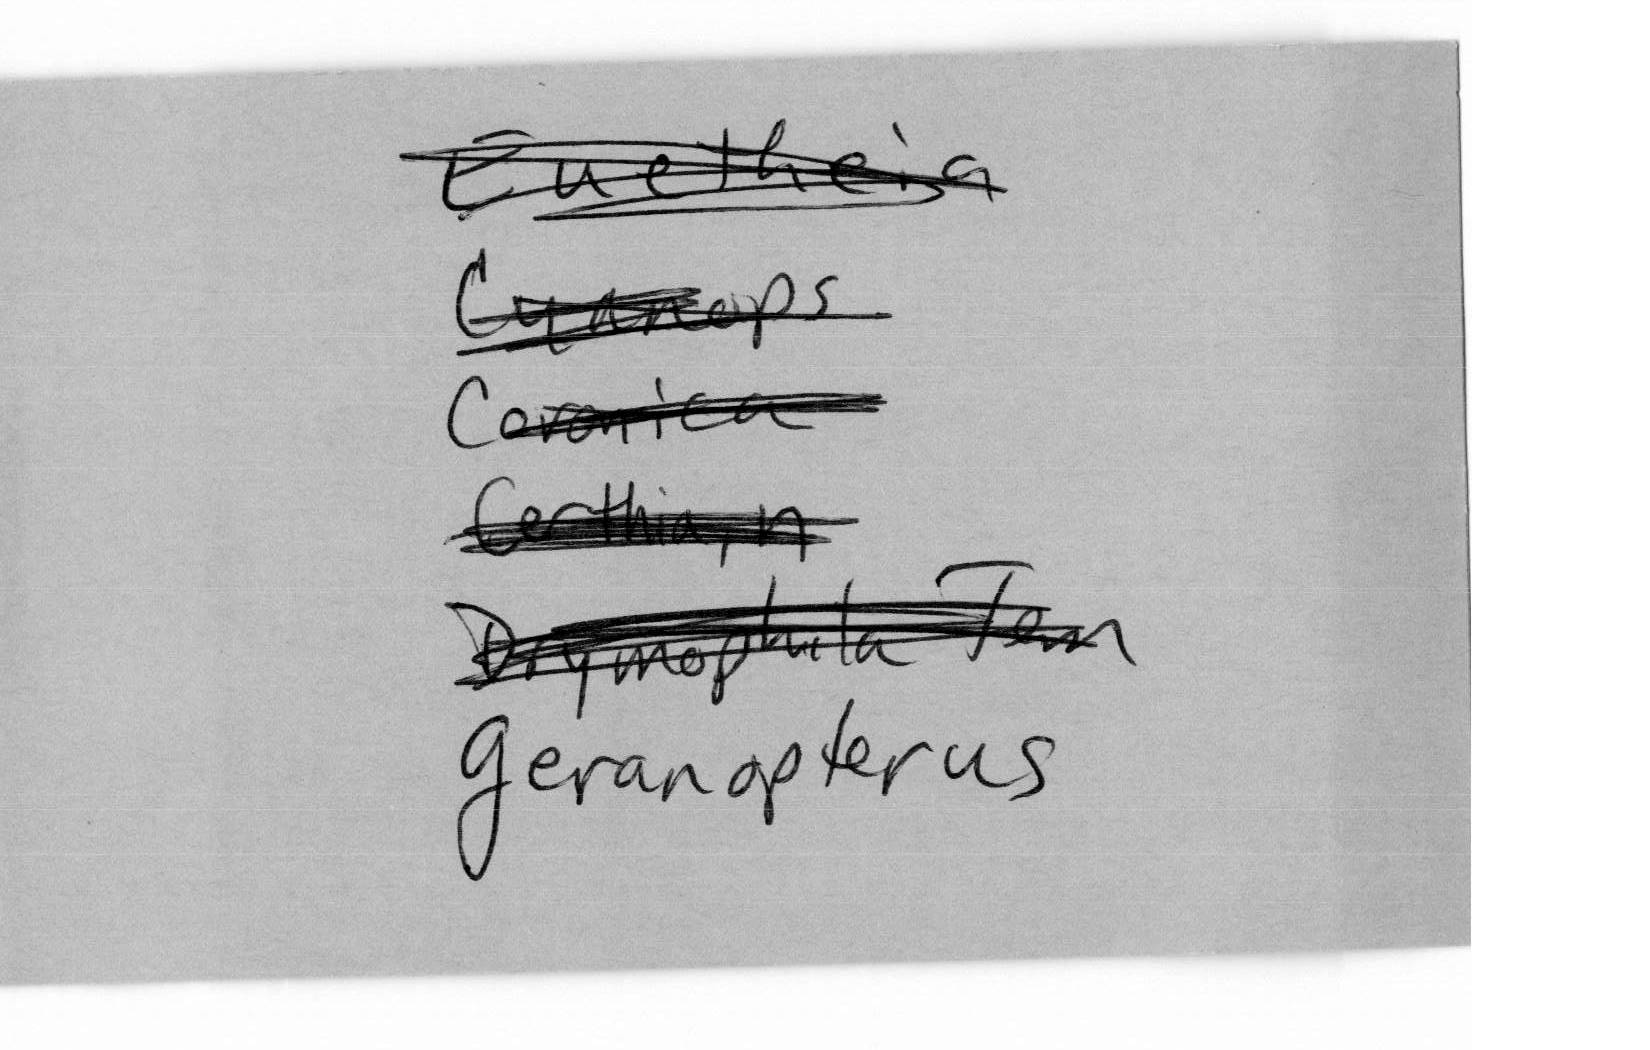 Euetheia
Cyanops
Coronica
Certhia, n
Drymophila Tem
geranopterus